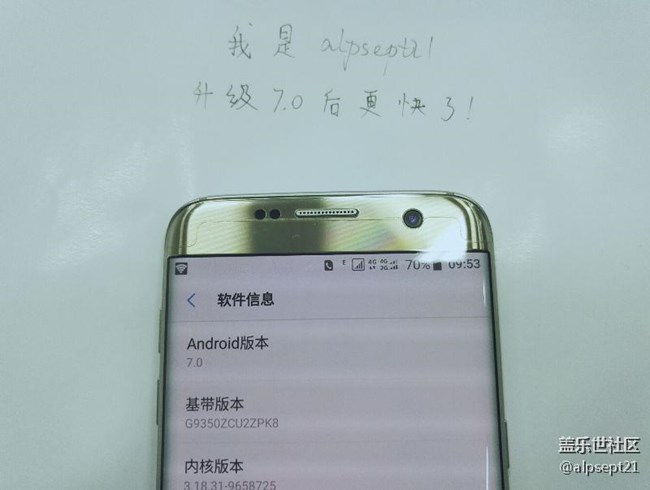 我是 alpsept21
升级 7.0 后更快了!
E 4G 4G 2G 70% 09:53
软件信息
Android版本
7.0
基带版本
G9350ZCU2ZPK8
内核版本
3.18.31-9658725
盖乐世社区
@alpsept21